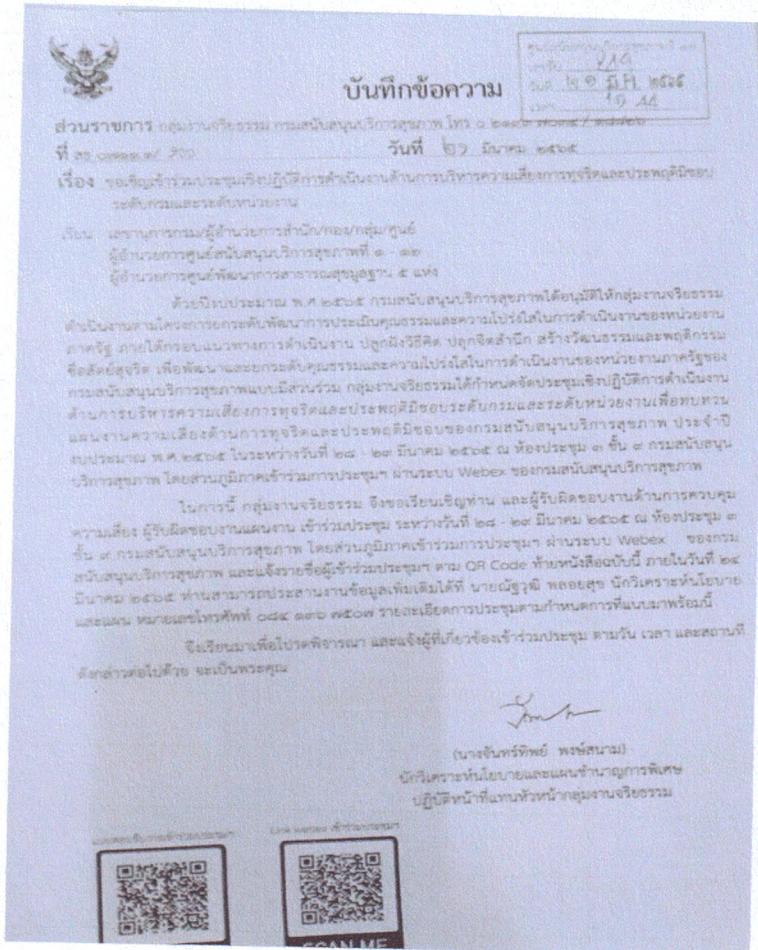 บันทึกข้อความ
ส่วนราชการ กลุ่มงานจริยธรรม กรมสนับสนุนบริการสุขภาพ โทร
ที่ สธ วันที่ ๒๑ มีนาคม ๒๕๖๕
เรื่อง ขอเชิญเข้าร่วมประชุมเชิงปฏิบัติการดำเนินงานด้านการบริหารความเสี่ยงการทุจริตและประพฤติมิชอบ
ระดับกรมและระดับหน่วยงาน
เรียน เลขานุการกรม/ผู้อำนวยการสำนัก/กอง/กลุ่ม/ศูนย์
ผู้อำนวยการศูนย์สนับสนุนบริการสุขภาพที่ ๑ - ๑๒
ผู้อำนวยการศูนย์พัฒนาการสาธารณสุขมูลฐาน ๕ แห่ง
ด้วยปีงบประมาณ พ.ศ.๒๕๖๕ กรมสนับสนุนบริการสุขภาพได้อนุมัติให้กลุ่มงานจริยธรรม
ดำเนินงานตามโครงการยกระดับพัฒนาการประเมินคุณธรรมและความโปร่งใสในการดำเนินงานของหน่วยงาน
ภาครัฐ ภายใต้กรอบแนวทางการดำเนินงาน ปลูกฝังวิธีคิด ปลุกจิตสำนึก สร้างวัฒนธรรมและพฤติกรรม
ซื่อสัตย์สุจริต เพื่อพัฒนาและยกระดับคุณธรรมและความโปร่งใสในการดำเนินงานของหน่วยงานภาครัฐของ
กรมสนับสนุนบริการสุขภาพแบบมีส่วนร่วม กลุ่มงานจริยธรรมได้กำหนดจัดประชุมเชิงปฏิบัติการดำเนินงาน
ด้านการบริหารความเสี่ยงการทุจริตและประพฤติมิชอบระดับกรมและระดับหน่วยงานเพื่อทบทวน
แผนงานความเสี่ยงด้านการทุจริตและประพฤติมิชอบของกรมสนับสนุนบริการสุขภาพ ประจำปี
งบประมาณ พ.ศ.๒๕๖๕ ในระหว่างวันที่ ๒๘ - ๒๙ มีนาคม ๒๕๖๕ ณ ห้องประชุม ๓ ชั้น ๙ กรมสนับสนุน
บริการสุขภาพ โดยส่วนภูมิภาคเข้าร่วมการประชุมฯ ผ่านระบบ Webex ของกรมสนับสนุนบริการสุขภาพ
ในการนี้ กลุ่มงานจริยธรรม จึงขอเรียนเชิญท่าน และผู้รับผิดชอบงานด้านการควบคุม
ความเสี่ยง ผู้รับผิดชอบงานแผนงาน เข้าร่วมประชุม ระหว่างวันที่ ๒๘ - ๒๙ มีนาคม ๒๕๖๕ ณ ห้องประชุม ๓
ชั้น ๙ กรมสนับสนุนบริการสุขภาพ โดยส่วนภูมิภาคเข้าร่วมการประชุมฯ ผ่านระบบ Webex ของกรม
สนับสนุนบริการสุขภาพ และแจ้งรายชื่อผู้เข้าร่วมประชุมฯ ตาม QR Code ท้ายหนังสือฉบับนี้ ภายในวันที่ ๒๔
มีนาคม ๒๕๖๕ ท่านสามารถประสานงานข้อมูลเพิ่มเติมได้ที่ นายณัฐวุฒิ พลอยสุข นักวิเคราะห์นโยบาย
และแผน หมายเลขโทรศัพท์ ๐๘๔ ๑๓๖ ๗๕๐๗ รายละเอียดการประชุมตามกำหนดการที่แนบมาพร้อมนี้
จึงเรียนมาเพื่อโปรดพิจารณา และแจ้งผู้ที่เกี่ยวข้องเข้าร่วมประชุม ตามวัน เวลา และสถานที่
ดังกล่าวต่อไปด้วย จะเป็นพระคุณ
(นางจันทร์ทิพย์ พงษ์สนาม)
นักวิเคราะห์นโยบายและแผนชำนาญการพิเศษ
ปฏิบัติหน้าที่แทนหัวหน้ากลุ่มงานจริยธรรม
แบบตอบรับการเข้าร่วมประชุมฯ Link webex เข้าร่วมประชุมฯ
SCAN ME